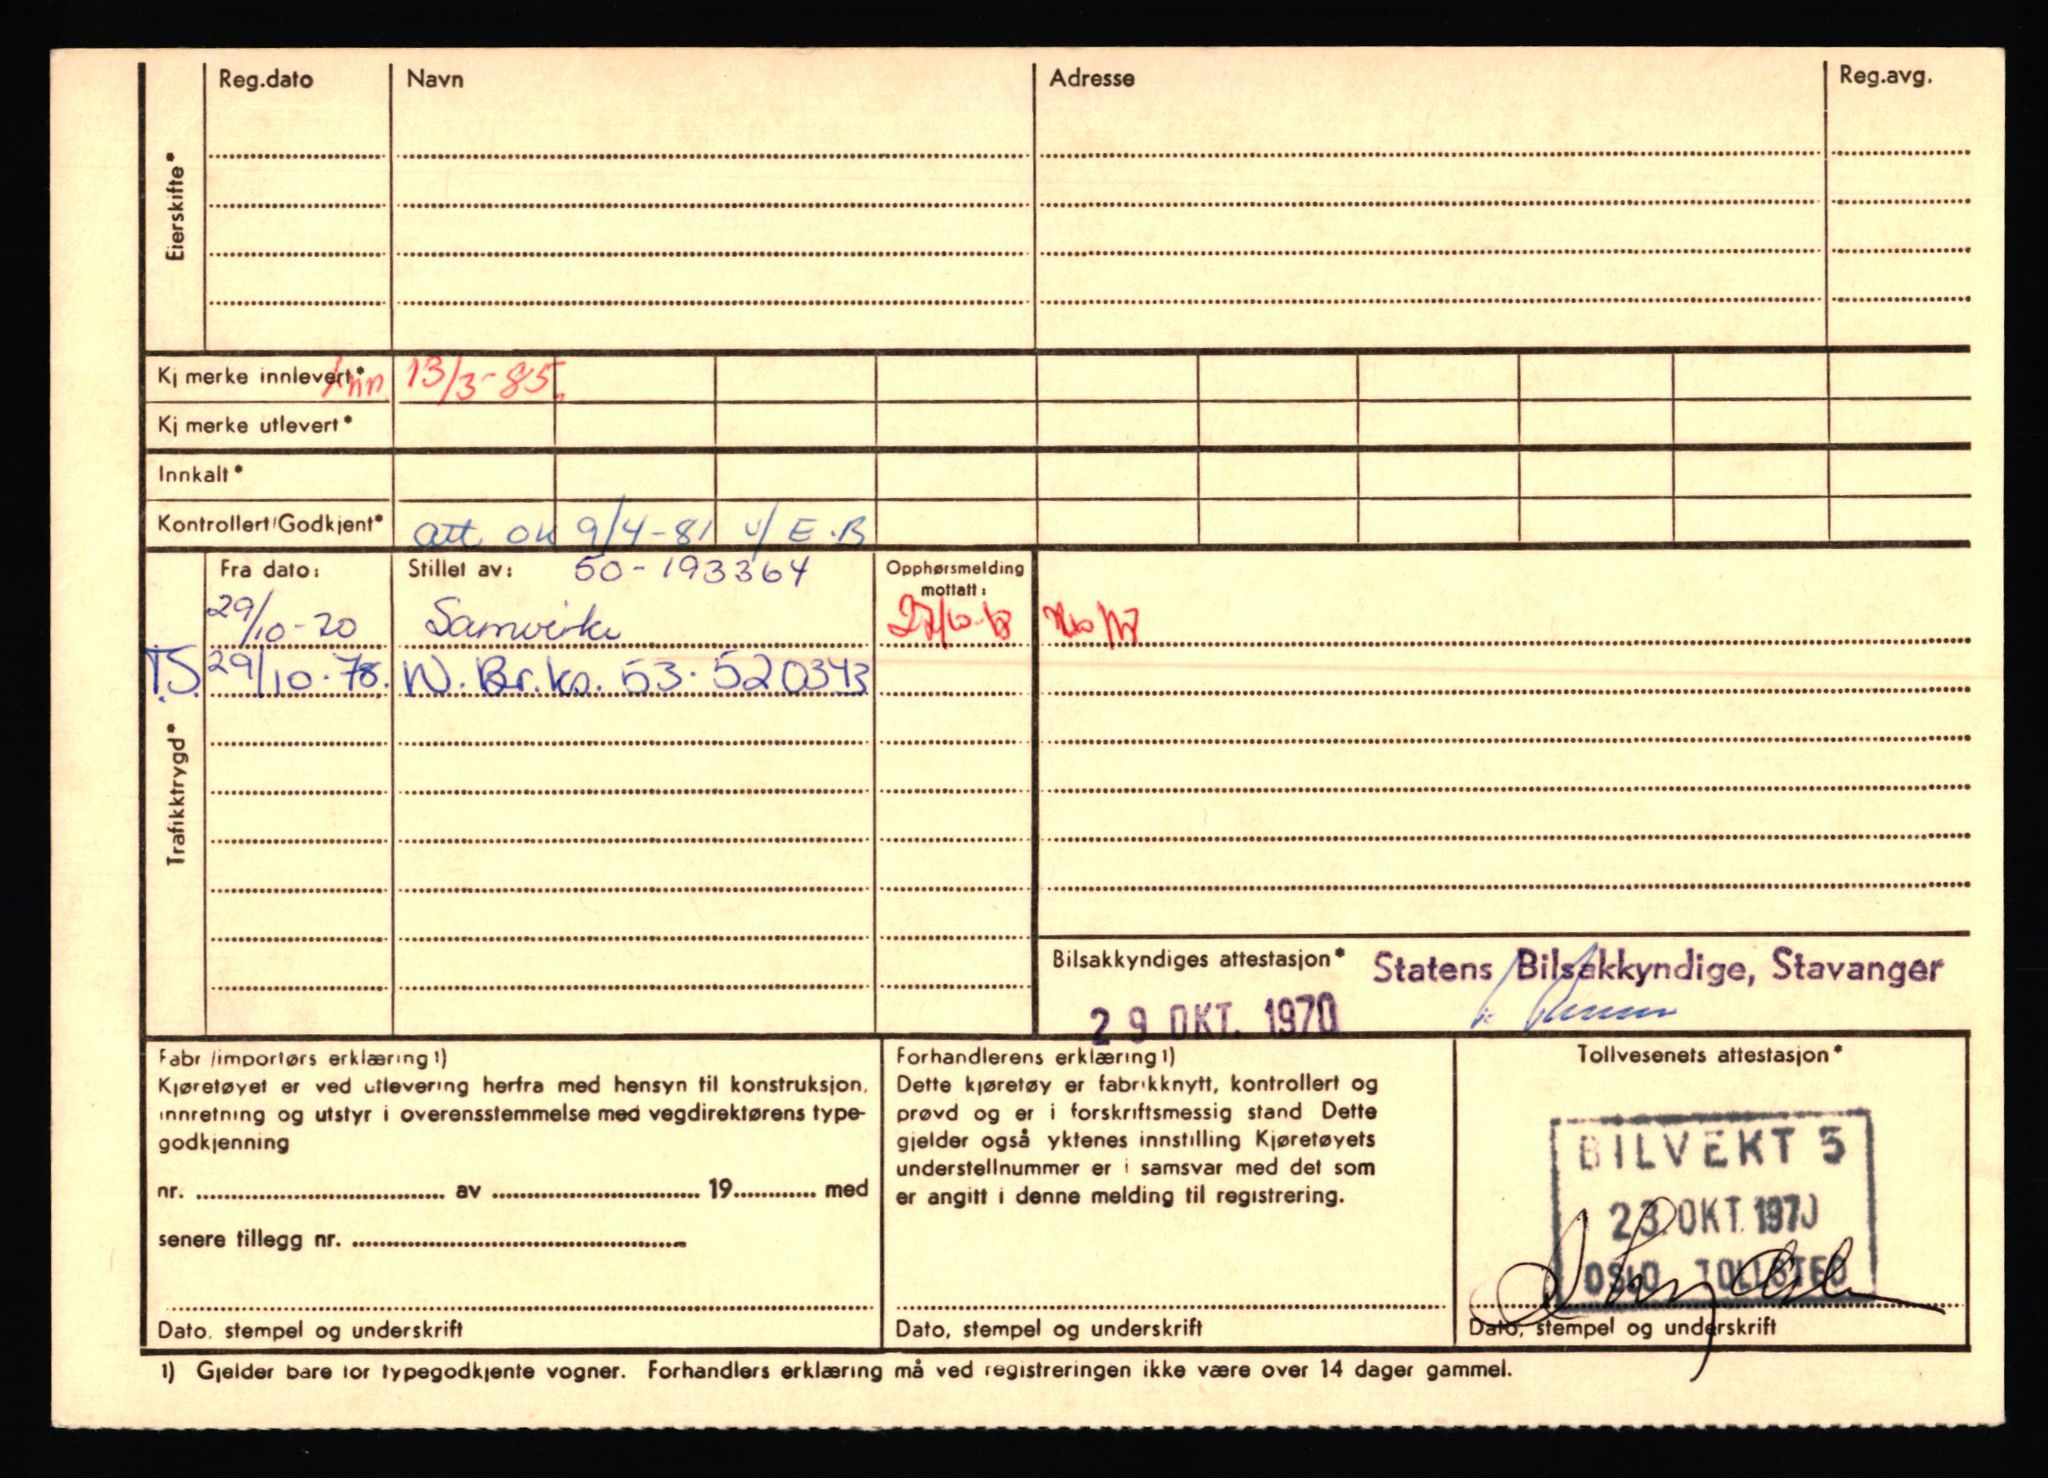 Reg.dato Navn Adresse Reg.avg.
Eierskifte*
Kj merke innlevert* Ann 13/3-85.
Kj merke utlevert*
Innkalt*
Kontrollert/Godkjent* att ok 9/4-81 v/ E.B
Fra dato: Stillet av: 50-193364 Opphørsmelding
mottatt:
29/10-70 Samvirke
T.S. 29/10-78. N. Br.ko. 53.520343
Trafikktrygd*
Bilsakkyndiges attestasjon* Statens Bilsakkyndige, Stavanger
29 OKT. 1970
Fabr /importørs erklæring 1)
Kjøretøyet er ved utlevering herfra med hensyn til konstruksjon,
innretning og utstyr i overensstemmelse med vegdirektørens type-
godkjenning
nr. av 19 med
senere tillegg nr.
Dato, stempel og underskrift
Forhandlerens erklæring 1)
Dette kjøretøy er fabrikknytt, kontrollert og
prøvd og er i forskriftsmessig stand Dette
gjelder også yktenes innstilling Kjøretøyets
understellnummer er i samsvar med det som
er angitt i denne melding til registrering.
Dato, stempel og underskrift
Tollvesenets attestasjon*
BILVEKT 5
23.OKT.1970
OSLO TOLLSTED
Dato, stempel og underskrift
1) Gjelder bare for typegodkjente vogner. Forhandlers erklæring må ved registreringen ikke være over 14 dager gammel.